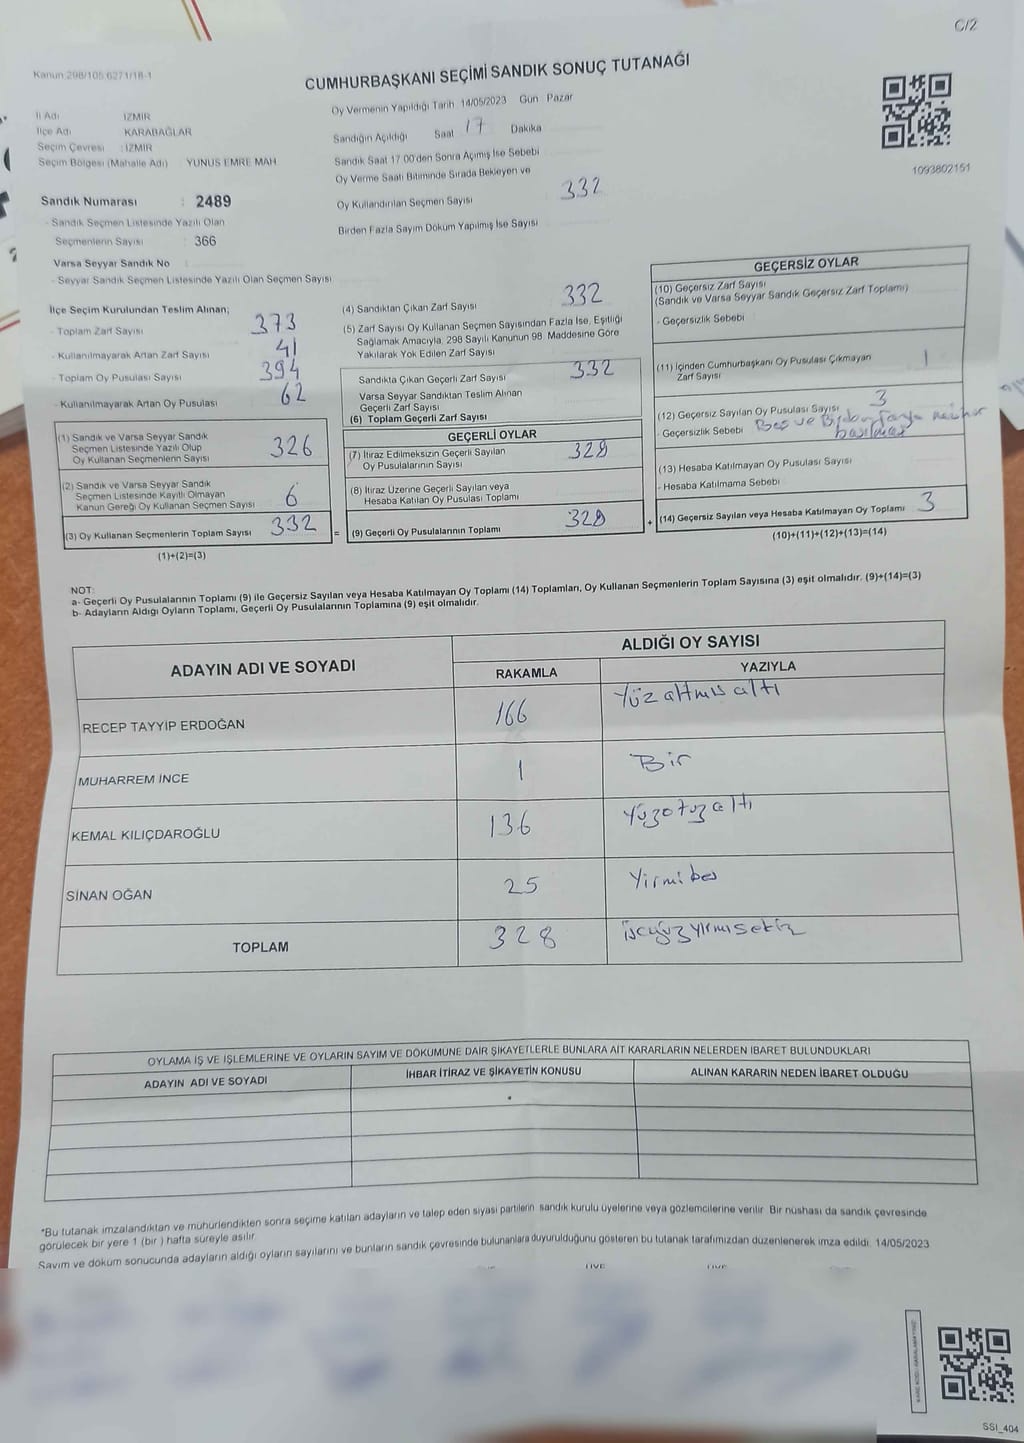 C/2
Kanun 298/105 6271/18-1
CUMHURBAŞKANI SEÇİMİ SANDIK SONUÇ TUTANAĞI
İl Adı İZMİR
İlçe Adı KARABAĞLAR
Seçim Çevresi : İZMİR
Seçim Bölgesi (Mahalle Adı) YUNUS EMRE MAH
Oy Vermenin Yapıldığı Tarih 14/05/2023 Gün Pazar
Sandığın Açıldığı Saat 17 Dakika
Sandık Saat 17 00'den Sonra Açımış İse Sebebi
Oy Verme Saati Bitiminde Sırada Bekleyen ve
Oy Kullandırılan Seçmen Sayısı 332
Birden Fazla Sayım Döküm Yapılmış İse Sayısı
1093802151
Sandık Numarası : 2489
- Sandık Seçmen Listesinde Yazılı Olan
Seçmenlerin Sayısı : 366
Varsa Seyyar Sandık No :
- Seyyar Sandık Seçmen Listesinde Yazılı Olan Seçmen Sayısı
İlçe Seçim Kurulundan Teslim Alınan;
- Toplam Zarf Sayısı 373
- Kullanılmayarak Artan Zarf Sayısı 41
- Toplam Oy Pusulası Sayısı 394
- Kullanılmayarak Artan Oy Pusulası 62
(1) Sandık ve Varsa Seyyar Sandık
Seçmen Listesinde Yazılı Olup
Oy Kullanan Seçmenlerin Sayısı 326
(2) Sandık ve Varsa Seyyar Sandık
Seçmen Listesinde Kayıtlı Olmayan
Kanun Gereği Oy Kullanan Seçmen Sayısı 6
(3) Oy Kullanan Seçmenlerin Toplam Sayısı 332
(1)+(2)=(3)
(4) Sandıktan Çıkan Zarf Sayısı 332
(5) Zarf Sayısı Oy Kullanan Seçmen Sayısından Fazla İse, Eşitliği
Sağlamak Amacıyla, 298 Sayılı Kanunun 98. Maddesine Göre
Yakılarak Yok Edilen Zarf Sayısı
Sandıkta Çıkan Geçerli Zarf Sayısı 332
Varsa Seyyar Sandıktan Teslim Alınan
Geçerli Zarf Sayısı
(6) Toplam Geçerli Zarf Sayısı
GEÇERLİ OYLAR
(7) İtiraz Edilmeksizin Geçerli Sayılan
Oy Pusulalarının Sayısı 328
(8) İtiraz Üzerine Geçerli Sayılan veya
Hesaba Katılan Oy Pusulası Toplamı
= (9) Geçerli Oy Pusulalarının Toplamı 328
GEÇERSİZ OYLAR
(10) Geçersiz Zarf Sayısı
(Sandık ve Varsa Seyyar Sandık Geçersiz Zarf Toplamı)
- Geçersizlik Sebebi
(11) İçinden Cumhurbaşkanı Oy Pusulası Çıkmayan
Zarf Sayısı 1
(12) Geçersiz Sayılan Oy Pusulası Sayısı 3
- Geçersizlik Sebebi Boş ve Birden fazla mühür
(13) Hesaba Katılmayan Oy Pusulası Sayısı
- Hesaba Katılmama Sebebi
+ (14) Geçersiz Sayılan veya Hesaba Katılmayan Oy Toplamı 3
(10)+(11)+(12)+(13)=(14)
NOT:
a- Geçerli Oy Pusulalarının Toplamı (9) ile Geçersiz Sayılan veya Hesaba Katılmayan Oy Toplamı (14) Toplamları, Oy Kullanan Seçmenlerin Toplam Sayısına (3) eşit olmalıdır. (9)+(14)=(3)
b- Adayların Aldığı Oyların Toplamı, Geçerli Oy Pusulalarının Toplamına (9) eşit olmalıdır.
ADAYIN ADI VE SOYADI ALDIĞI OY SAYISI
RAKAMLA YAZIYLA
RECEP TAYYİP ERDOĞAN 166 Yüz altmış altı
MUHARREM İNCE 1 Bir
KEMAL KILIÇDAROĞLU 136 Yüzotuz altı
SİNAN OĞAN 25 Yirmi beş
TOPLAM 328 üçyüzyirmisekiz
OYLAMA İŞ VE İŞLEMLERİNE VE OYLARIN SAYIM VE DÖKÜMÜNE DAİR ŞİKAYETLERLE BUNLARA AİT KARARLARIN NELERDEN İBARET BULUNDUKLARI
ADAYIN ADI VE SOYADI İHBAR İTİRAZ VE ŞİKAYETİN KONUSU ALINAN KARARIN NEDEN İBARET OLDUĞU
*Bu tutanak imzalandıktan ve mühürlendikten sonra seçime katılan adayların ve talep eden siyasi partilerin sandık kurulu üyelerine veya gözlemcilerine verilir. Bir nüshası da sandık çevresinde
görülecek bir yere 1 (bir) hafta süreyle asılır.
Sayım ve döküm sonucunda adayların aldığı oyların sayılarını ve bunların sandık çevresinde bulunanlara duyurulduğunu gösteren bu tutanak tarafımızdan düzenlenerek imza edildi. 14/05/2023
SSI_404